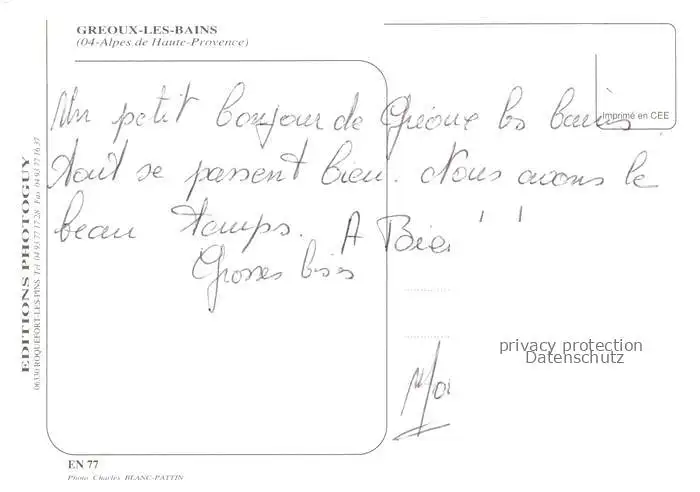 GREOUX-LES-BAINS
(04-Alpes de Haute-Provence)
Imprimé en CEE
Un petit bonjour de Gréoux les bains.
Tout se passent bien. Nous avons le
beau temps. A Bien
Grosses bises
privacy protection
Datenschutz
EDITIONS PHOTOGUY
06330 ROQUEFORT-LES-PINS Tel 04 93 77 17 28 Fax 04 93 77 16 37
EN 77
Photo Charles BLANC-PATTIN